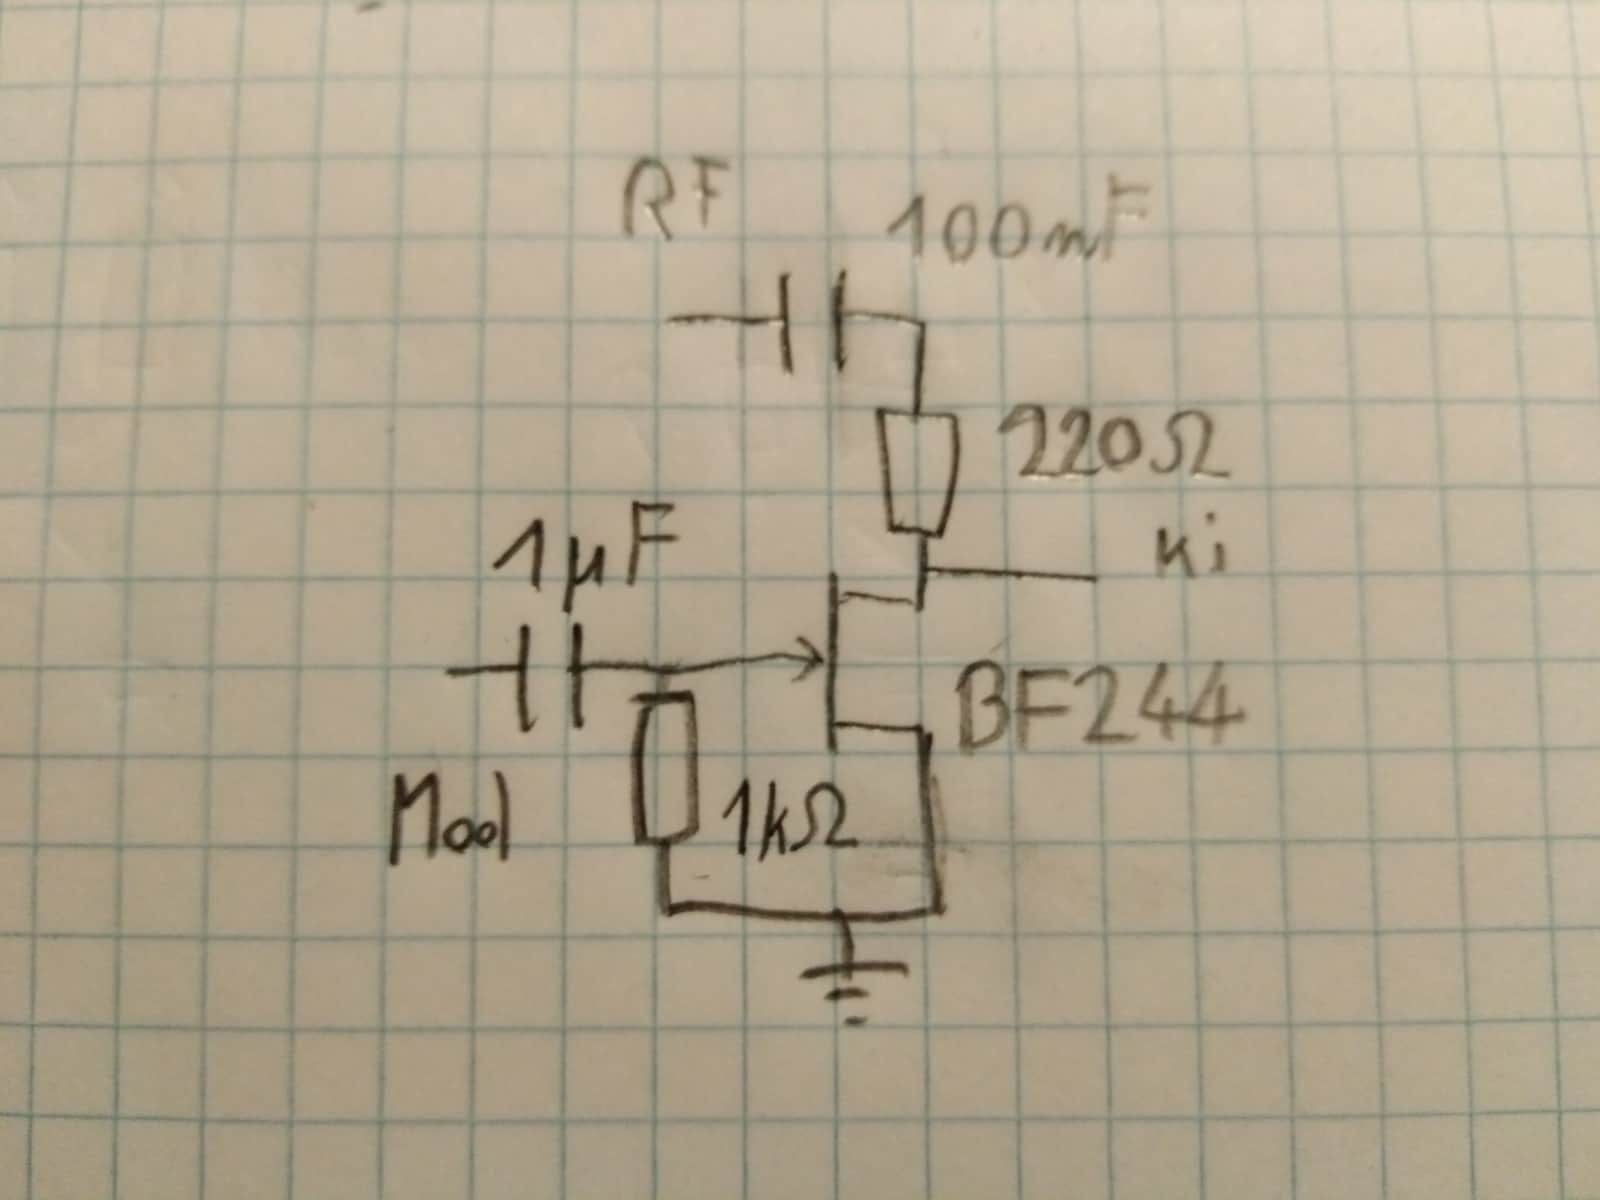 RF
100nF
220Ω
1µF
Ki
BF244
Mod
1kΩ